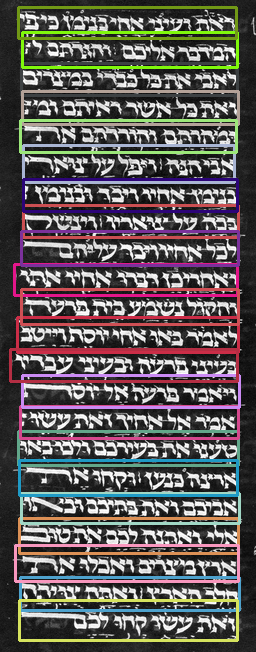 ראות ועיני אחי בנימין כי פי
המדבר אליכם והגדתם ל
לאבי את כל כבודי במצרים
ואת כל אשר ראיתם ומ
ומהרתם והורדתם את
אבי הנה ויפל על צוארי
בנימן אחיו ויבך ובנימן
בכה על צואריו וינשק
לכל אחיו ויבך עליהם
ואחרי כן דברו אחיו אתו
והקל נשמע בית פרעה
לאמר באו אחי יוסף וייטב
בעיני פרעה ובעיני עבדיו
ויאמר פרעה אל יוסף
אמר אל אחיך זאת עשו
טענו את בעירכם ולכו באו
ארצה כנען וקחו את
אביכם ואת בתיכם ובאו
אלי ואתנה לכם את טוב
ארץ מצרים ואכלו את
חלב הארץ ואתה צויתה
זאת עשו קחו לכם